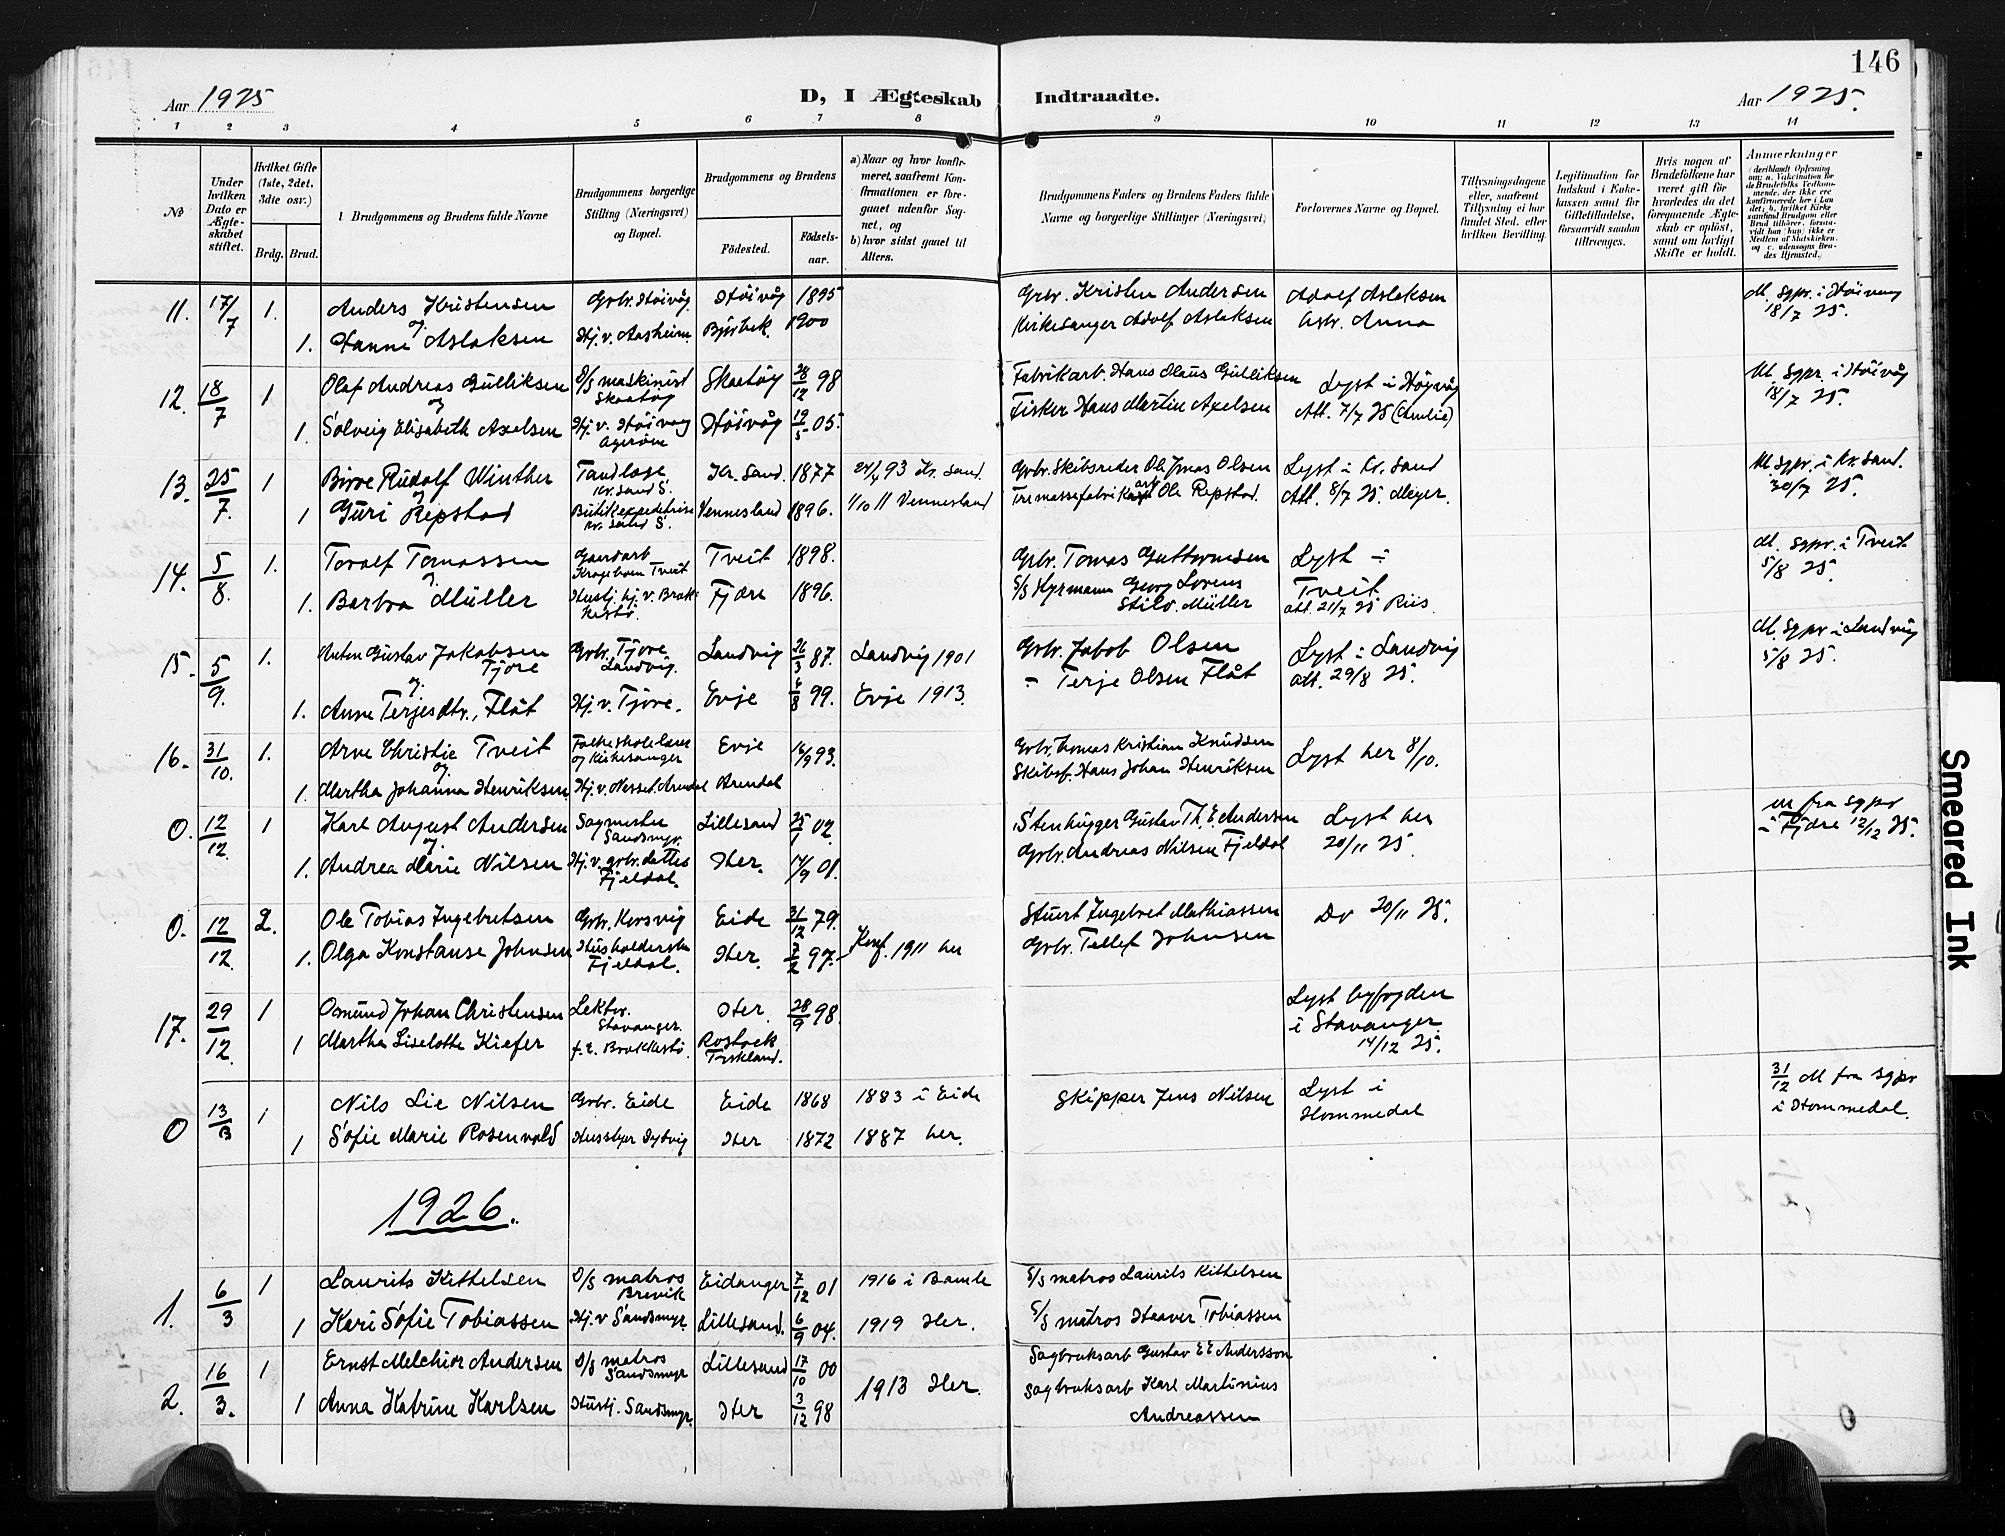 146
Aar 1925
D, I Ægteskab Indtraadte.
Aar 1925.
1 2 3 4 5 6 7 8 9 10 11 12 13 14
No
Under hvilken Dato er Ægteskabet stiftet.
Hvilket Gifte (1ste, 2det, 3dte osv.)
Brdg. Brud.
Brudgommens og Brudens fulde Navne
Brudgommens borgerlige Stilling (Næringsvei) og Bopæl.
Brudgommens og Brudens
Födested.
Födselsaar.
a) Naar og hvor konfirmeret, saafremt Konfirmationen er foregaaet udenfor Sognet, og
b) hvor sidst gaaet til Alters.
Brudgommens Faders og Brudens Faders fulde Navne og borgerlige Stillinger (Næringsvei)
Forlovernes Navne og Bopæl.
Tillysningsdagene eller, saafremt Tillysning ei har fundet Sted, efter hvilken Bevilling.
Legitimation for Indskud i Enkekassen samt for Giftetilladelse, forsaavidt saadan tiltrænges.
Hvis nogen af Brudefolkene har været gift för hvorledes da det foregaaende Ægteskab er oplöst, samt om lovligt Skifte er holdt.
Anmerkninger
11. 17/7 1. Anders Kristensen Grbr. Höivåg Höivåg 1895 Grbr. Kristen Andersen Adolf Aslaksen M. sgpr. i Höivaag
og 18/7 25.
1. Hanne Aslaksen Hj. v. Aasheim Bjorbek 1900 Kirkesanger Adolf Aslaksen Anna
12. 18/7 1 Olaf Andreas Gulliksen S/S maskinist Skaatøy Skaatöy 28/12 98 Fabrikarb. Hans Olaus Gulliksen Lyst i Høgvåg M. sgpr. i Höivåg
og 18/7 25.
1. Solveig Elisabeth Axelsen Hj. v. Höivaag Ageröen Höivåg 19/5 05. Fisker Hans Martin Axelsen Att. 7/7 25
13. 25/7. 1 Rudolf Winther Tandlæge Kr. Sand S. Kr. Sand 1877 24/4 93 Kr. Sand. Grbr. Skibsreder Ole Jonas Olsen Lyst i Kr. Sand M. sgpr. i Kr. Sand.
og 30/7 25.
1 Guri Repstad Butikexpeditrise Kr. Sand S. Vennesland 1896. 1/10 11 Vennesland Tremassefabrikarb Ole Repstad. Att. 8/7 25 Meyer.
14. 5/8. 1. Toralf Tomassen Gaardarb Tveit Tveit 1898. Grbr. Tomas Guttormsen Lyst i M. sgpr. i Tveit
og 5/8 25.
1. Barbra Müller Husbj. hj. v. Brækkestö Fjære 1896. S/S Hyrmann Georg Lorens Müller Tveit att. 21/7 25 Riis.
15. 5/9. 1. Anten Gustav Jakobsen Tjore Grbr. Tjore Landvig. Landvig 26/3 87. Landvig 1901 Grbr. Jakob Olsen Lyst i Landvig M. sgpr. i Landvig
og 5/8 25.
1. Anne Terjesdtr. Flåt Hj. v. Tjore. Evje 4/8 99. Evje 1913. - Terje Olsen Flåt att. 29/8 25.
16. 31/10. 1. Arne Christie Tveit Folkeskolelærer og Kirkesanger Evje 16/9 93. Grbr. Tomas Kristian Knudsen Lyst her 8/10.
og
1. Martha Johanna Henriksen. Hj. v. Nesset. Arendal Arendal Skibsf. Hans Johan Henriksen
0. 12/12. 1 Karl August Andersen Sagmester Sandsmyr. Lillesand 25/1 02. Stenhugger Gustav Th. E. Andersen Lyst her m fra sgpr
og i Fjære 12/12 25.
1. Andrea Marie Nilsen Hj. v. grbr. dattes Fjeldal. Her. 14/9 01. Grbr. Andreas Nilsen Fjeldal 20/11 25.
0. 12/12. 2. Ole Tobias Ingebretsen Grbr. Korsvig Eide 31/12 79. Stuert Ingebret Mathiassen Do 20/11 25.
1. Olga Konstanse Johnsen Husholderske Fjeldal. Her. 7/2 97. Konf. 1911 her Grbr. Tellef Johnsen
17. 29/12. 1 Osmund Johan Christensen Lektor. Stavanger. Her. 28/9 98. Lyst byfogden i Stavanger 14/12 25.
1 Martha Liselotte Kiefer f. t. Brækkestö. Rostock Tyskland.
0 13/3 1 Nils Lie Nilsen Grbr. Eide Eide 1868 1883 i Eide Skipper Jens Nilsen Lyst i Hommedal 31/12 M fra sgpr i Hommedal.
1 Sofie Marie Rosenvold Husbyer Dybvig Her 1872 1887 her.
1926.
1. 6/3 1 Laurits Kittelsen S/S matros Brevik Eidanger 7/12 01 1916 i Bamle S/S matros Laurits Kittelsen
1 Kari Sofie Tobiassen Hj. v Sandsmyr. Lillesand. 6/9 04. 1919 Her. S/S matros Haaver Tobiassen
2. 16/3. 1 Ernst Melchior Andersen S/S matros Sandsmyr Lillesand 17/10 00 Sagbruksarb Gustav E E Andersson
1 Anna Katrine Karlsen Husbj. Sandsmyr. Her 3/12 98 1913 Her. Sagbruksarb Karl Martinius Andreassen
0
Smeared Ink